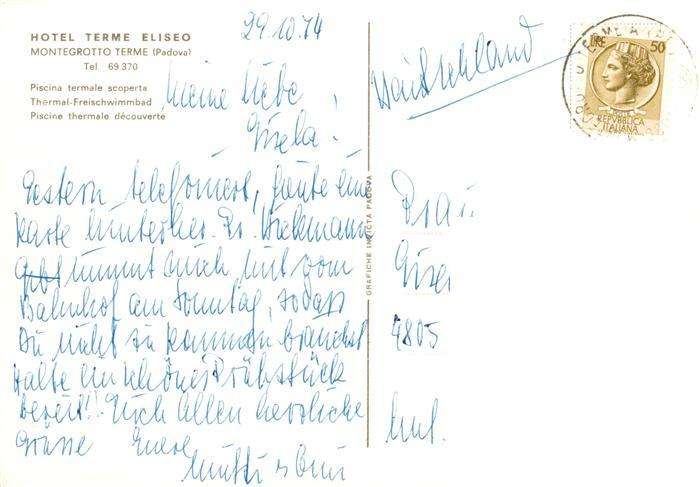 HOTEL TERME ELISEO
MONTEGROTTO TERME (Padova)
Tel. 69.370
Piscina termale scoperta
Thermal-Freischwimmbad
Piscine thermale découverte
29.10.74
Meine liebe
Gisela!
Gestern telefoniert, heute eine
Karte hinterher. Dr. Diekmann
nimmt mich mit vom
Bahnhof am Sonntag, sodass
Du nicht zu kommen brauchst
Halte ein schönes Frühstück
bereit! Euch Allen herzliche
Grüsse Euere
Mutti
GRAFICHE INVICTA PADOVA
Deutschland
LIRE 50
REPVBBLICA
ITALIANA
Frau
4805